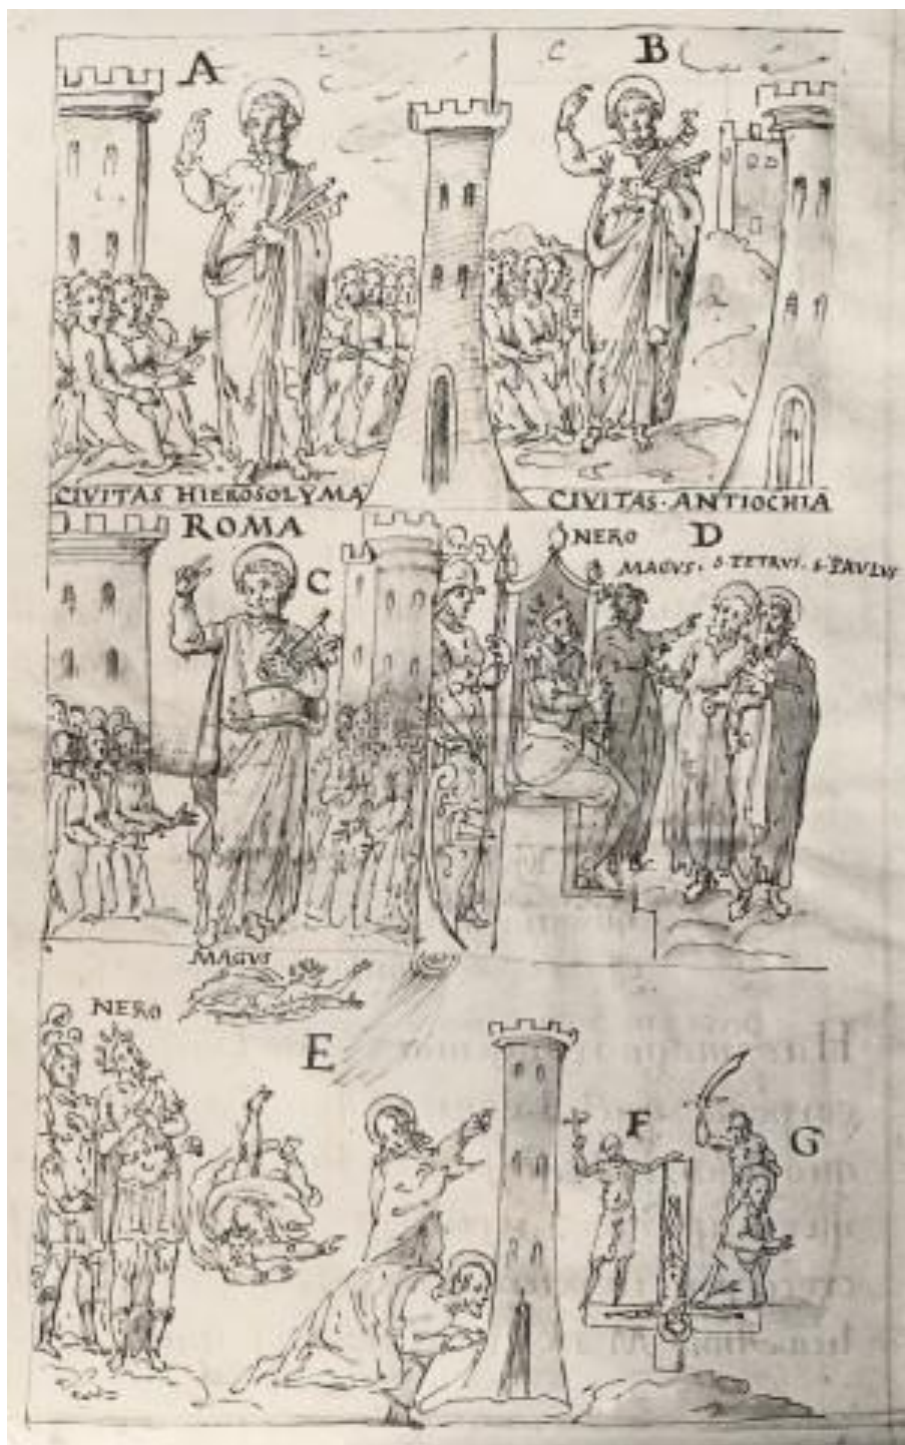 A
B
CIVITAS HIEROSOLYMA
CIVITAS·ANTIOCHIA
ROMA
C
NERO
D
MAGVS. S. PETRVS. S. PAVLVS
MAGVS
NERO
E
F
G